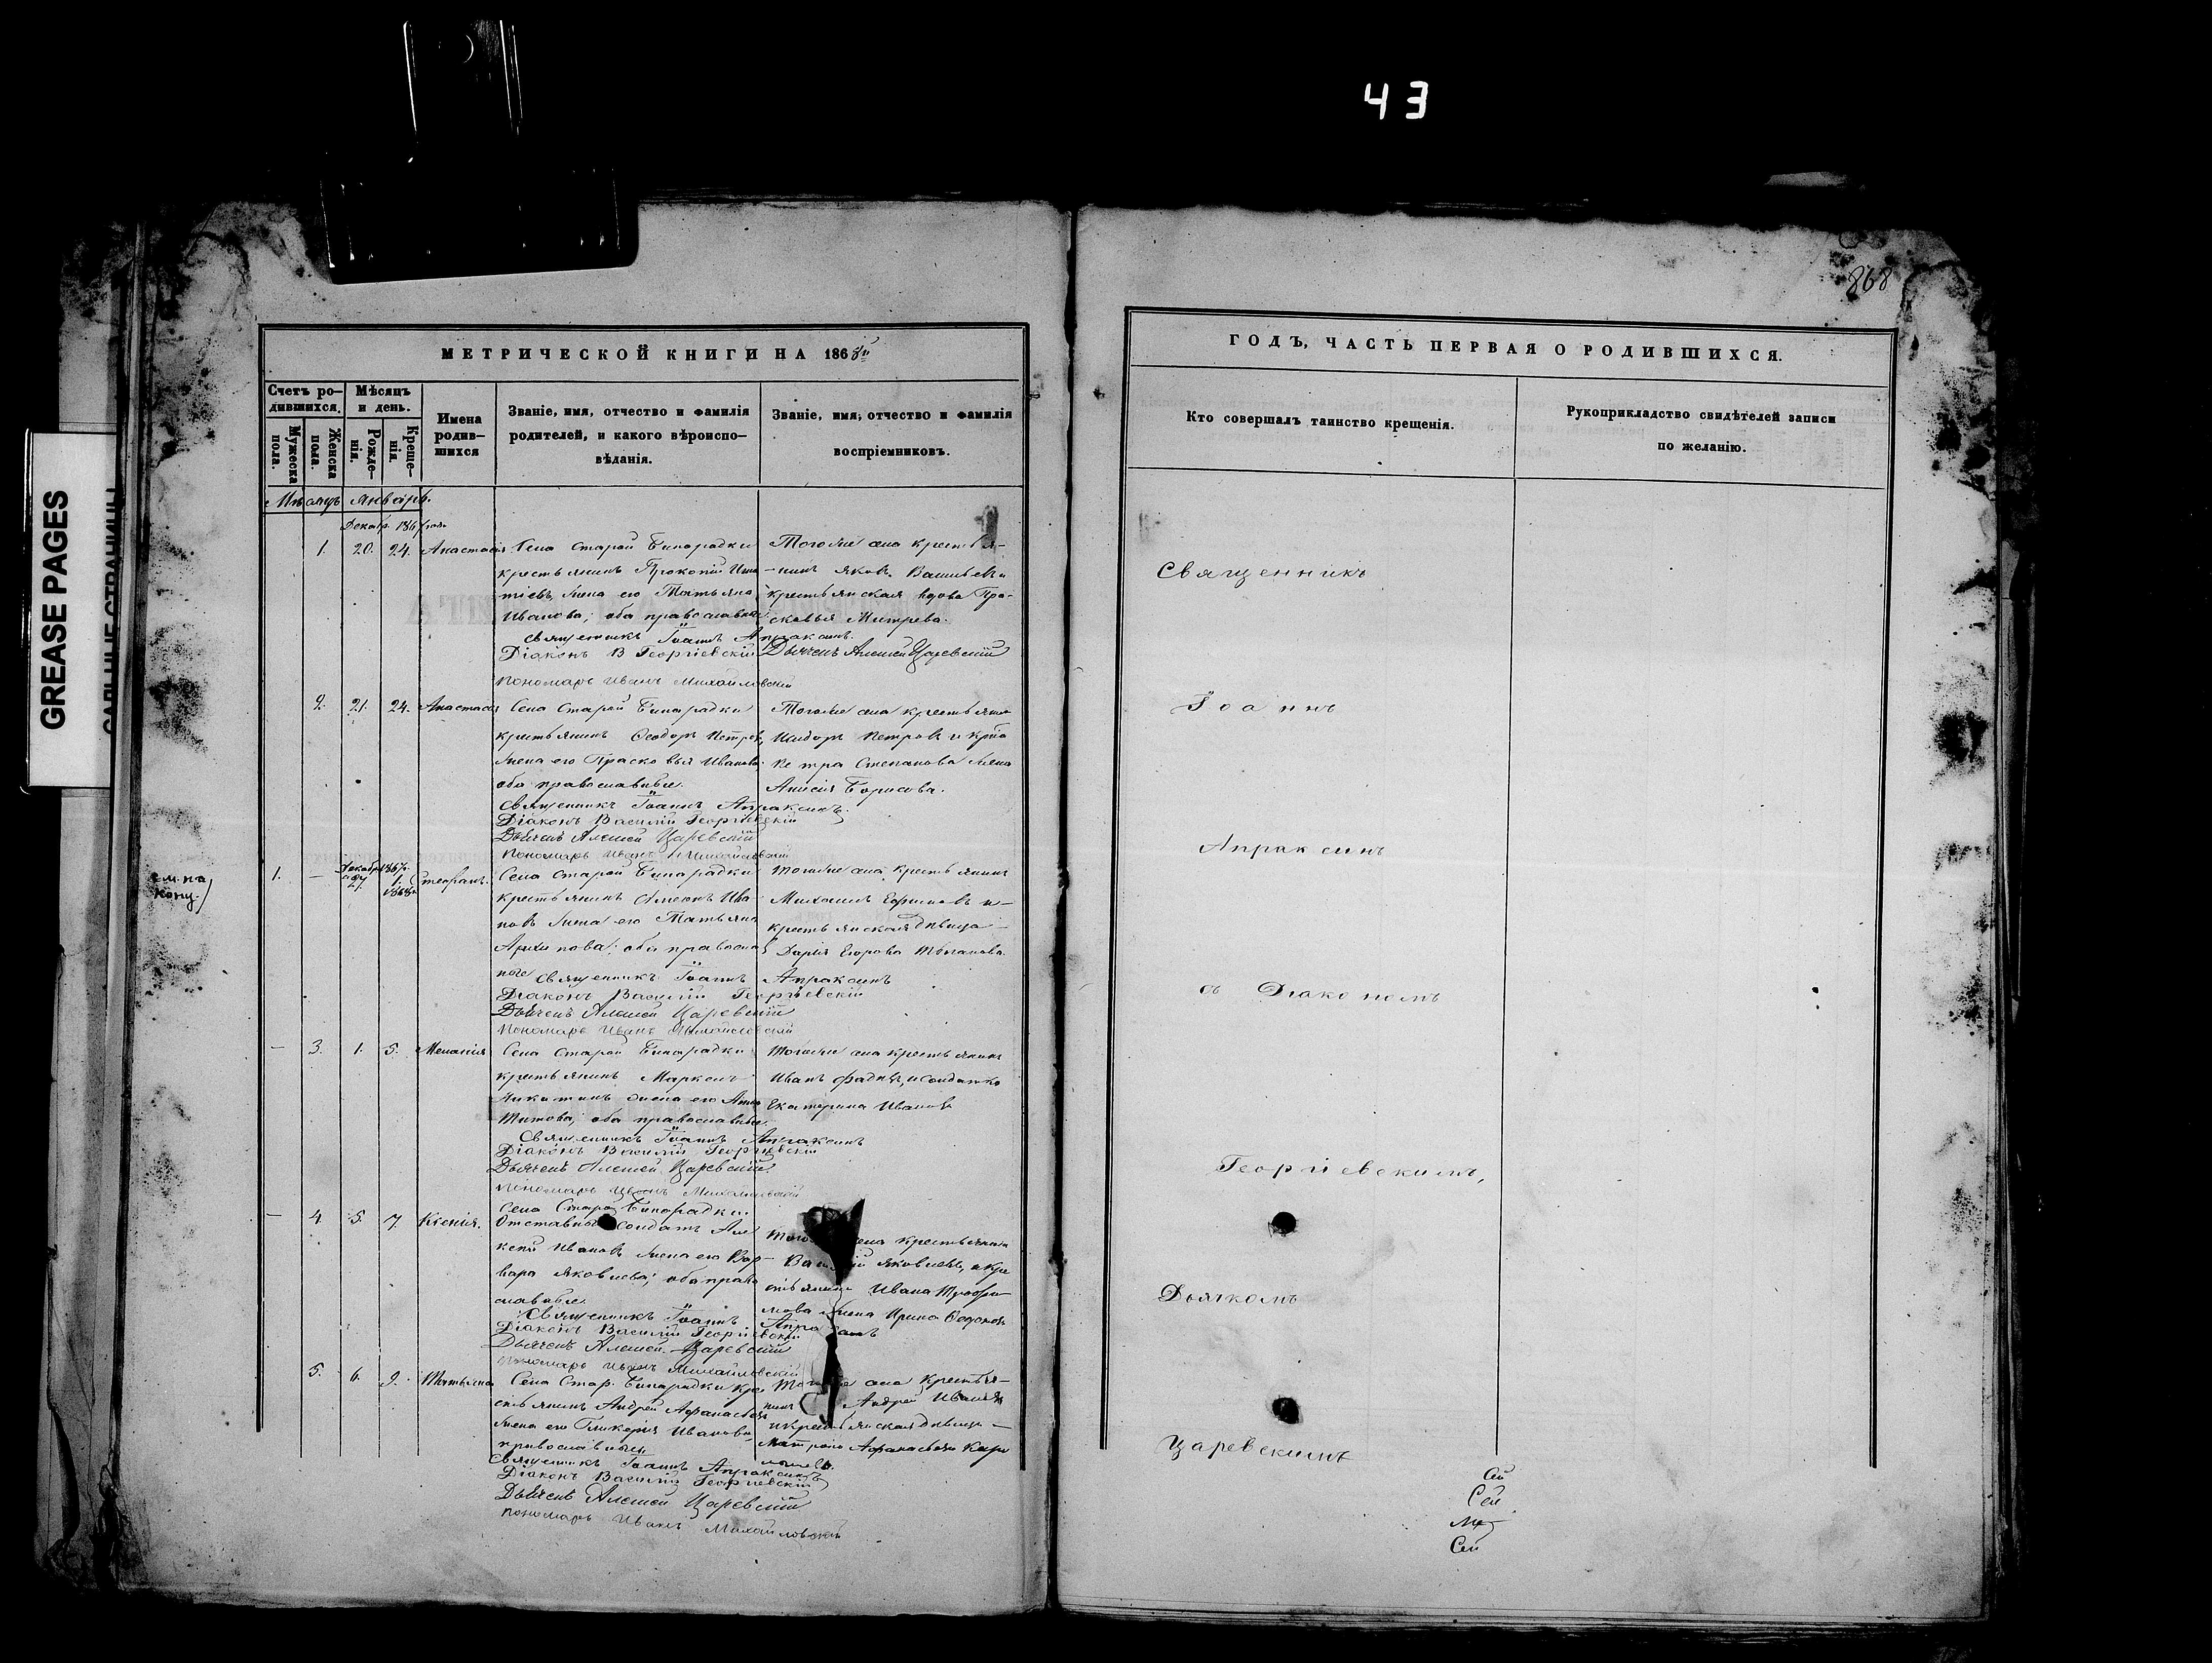 43
868
GREASE PAGES
МЕТРИЧЕСКОЙ КНИГИ НА 1868й
Счетъ ро-
дившихся.
Мужеска
пола.
Женска
пола.
Мѣсяцъ
и день.
Рожде-
нія.
Креще-
нія.
Имена
родив-
шихся
Званіе, имя, отчество и фамилія
родителей, и какого вѣроиспо-
вѣданія.
Званіе, имя, отчество и фамилія
воспріемниковъ.
Мѣсяцъ Январь.
Декабр. 1867 года
1. 20. 24. Анастасія
Села Старой Бинарадки
крестьянинъ Прокопій
жена его Татьяна
Иванова; оба православные
Тогоже села крестья-
-нинъ Яковъ Васильевъ и
крестьянская вдова Пра-
сковья Митрева.
Священникъ Іоаннъ Апраксинъ.
Діаконъ В Георгіевскій
Дьячекъ Алексей Царевскій
Пономарь Иванъ Михайловскій
2. 21. 24. Анастасія
Села Старой Бинарадки
крестьянинъ Ѳеодоръ Петровъ,
жена его Прасковья Иванова
оба православные.
Тогоже села крестьянинъ
Петровъ и
Петра Степанова жена
Анисія Борисова.
Священникъ Іоаннъ Апраксинъ.
Діаконъ Василій Георгіевскій
Дьячекъ Алексей Царевскій
Пономарь Иванъ Михайловскій
1. — Декабр 1867 27. 1. 1868 Стефанъ.
Села Старой Бинарадки
крестьянинъ Симеонъ Ива
новъ жена его Татьяна
Архипова; оба православ
ные
Тогоже села крестьянинъ
Михаилъ и
крестьянская дѣвица
Дарія Егорова
Священникъ Іоаннъ Апраксинъ
Діаконъ Василій Георгіевскій
Дьячекъ Алексей Царевскій
Пономарь Иванъ Михайловскій
— 3. 1. 5. Меланія
Села Старой Бинарадки
крестьянинъ Маркелъ
Никитинъ жена его Анна
Титова; оба православные.
Тогоже села крестьянинъ
Иванъ и солдатка
Екатерина Иванова
Священникъ Іоаннъ Апраксинъ
Діаконъ Василій Георгіевскій
Дьячекъ Алексей Царевскій
Пономарь Иванъ Михайловскій
— 4. 5. 7. Ксенія.
Села Старо Бинарадки
Отставный солдатъ Але
ксей Ивановъ жена его Вар-
вара Яковлева; оба право
славные.
села крестьянинъ
Яковлевъ, и кре
стьянина Ивана Трофи-
мова жена Ирина
Священникъ Іоаннъ
Діаконъ Василій Георгіевскій
Дьячекъ Алексей Царевскій
Пономарь Иванъ Михайловскій
5. 6. 9. Татьяна
Села Стар. Бинарадки кре
стьянинъ Андрей Афанасьевъ
жена его Гликерія Иванова
православные
села крестья-
нинъ Андрей Ивановъ
и крестьянская дѣвица
Афанасьева
Священникъ Іоаннъ Апраксинъ
Діаконъ Василій Георгіевскій
Дьячекъ Алексей Царевскій
Пономарь Иванъ Михайловскій
ГОДЪ, ЧАСТЬ ПЕРВАЯ О РОДИВШИХСЯ.
Кто совершалъ таинство крещенія.
Рукоприкладство свидѣтелей записи
по желанію.
Священникъ
Іоаннъ
Апраксинъ
съ Діакономъ
Георгіевскимъ,
Дьячкомъ
Царевскимъ